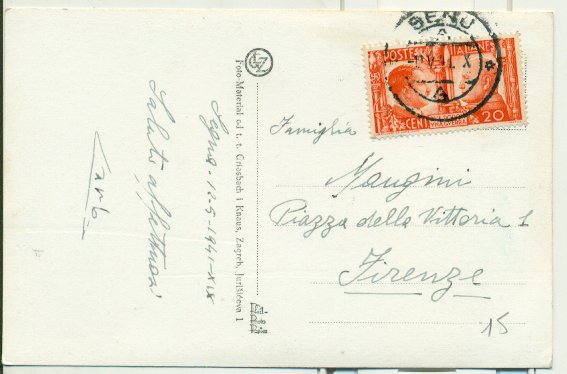 SENJ
POSTE ITALIANE
CENT 20
Famiglia
Mangini
Piazza della Vittoria 1
Firenze
15
Foto-Material od t. t. Griesbach i Knaus, Zagreb, Jurišićeva 1
12-5-1941-XIX
Saluti affettuosi
Carlo